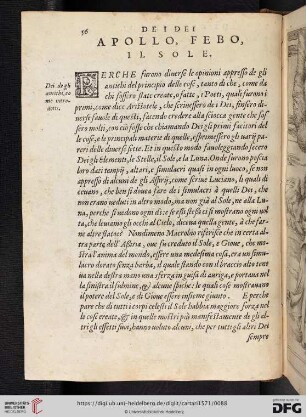 56
DEI DEI
APOLLO, FEBO,
IL SOLE.
Dei de gli
antichi, co
me
PERCHE furono diuerse le opinioni appresso de gli
antichi del principio delle cose, tanto di che, come da
chi fossero state create, o fatte, i Poeti, quali furono i
primi, come dice Aristotele, che scriuessero de i Dei, finsero di-
uerse fauole di questi, facendo credere alla sciocca gente che fos
sero molti, con ciò fosse che chiamando Dei gli primi fattori del
le cose, e le principali materie di quelle, essi secondo gli uarij pa-
reri delle diuerse sette. Et in questo modo fauoleggando fecero
Dei gli Elementi, le Stelle, il Sole, e la Luna. Onde furono poscia
loro dati tempij, altari, e simulacri quasi in ogni luoco, se non
appresso di alcuni de gli Assirij, come scriue Luciano, li quali di
ceuano, che bensì douea fare de i simulacri à quelli Dei, che
non erano ueduti in altro modo, ma non già al Sole, ne alla Lu
na, perche si uedono ogni dì: e se essi stessi ci si mostrano ogni uol
ta, che leuamo gli occhi al Cielo, diceua quella gente, à che far-
ne altre statue? Nondimeno Macrobio riferisce che in certa al
tra parte dell'Assiria, oue fu creduto il Sole, e Gioue, che mo-
stra l'anima del mondo, essere una medesima cosa, era un simu-
lacro dorato senza barba, il quale stando con il braccio alto tene
ua nella destra mano una sferza in guisa di auriga, e portaua nel
la sinistra il fulmine, & alcune spiche: le quali cose mostrauano
il potere del Sole, e di Gioue essere insieme giunto. E perche
pare che di tutti i corpi celesti il Sole habbia maggiore forza nel
le cose create, & in quelle mostri più manifestamente de gli al-
tri gli effetti suoi, hanno uoluto alcuni, che per tutti gli altri Dei
sempre
UNIVERSITÄTS-
BIBLIOTHEK
HEIDELBERG
https://digi.ub.uni-heidelberg.de/diglit/cartari1571/0088
© Universitätsbibliothek Heidelberg
gefördert durch die
DFG